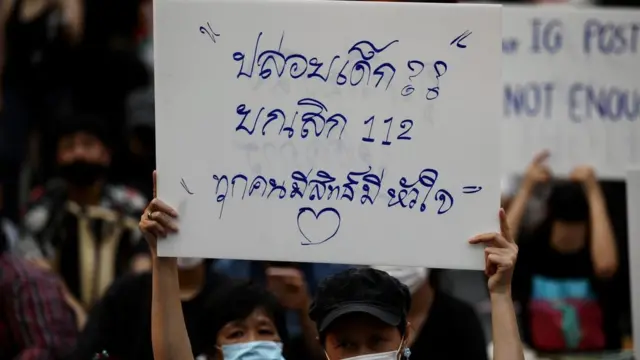 "ปลอบเด็ก??"
ยกเลิก 112
"ทุกคนมีสิทธิ์มีหัวใจ"
IG POST
NOT ENOU